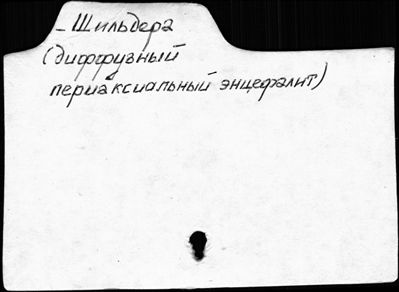 – Шильдера
(диффузный
периаксиальный энцефалит)